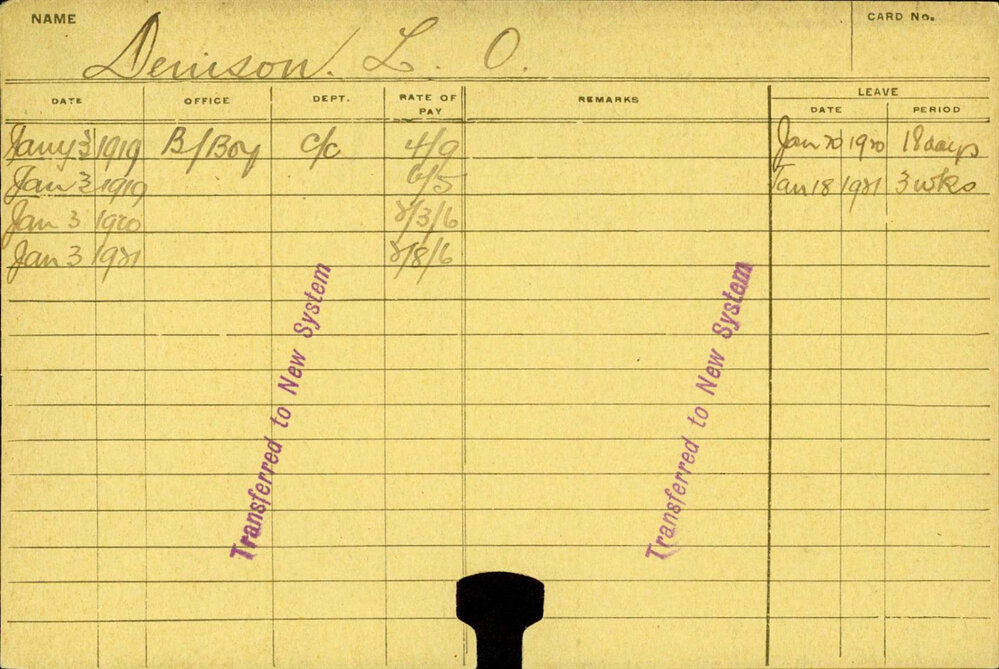 NAME Denison. L. O. CARD No.
DATE OFFICE DEPT. RATE OF PAY REMARKS LEAVE
DATE PERIOD
Jany 3 1919 B/Boy C/C 4/9 Jan 20 1920 18 days
Jan 3 1919 6/5 Jan 18 1921 3 wks
Jan 3 1920 2/3/6
Jan 3 1921 2/8/6
Transferred to New System
Transferred to New System